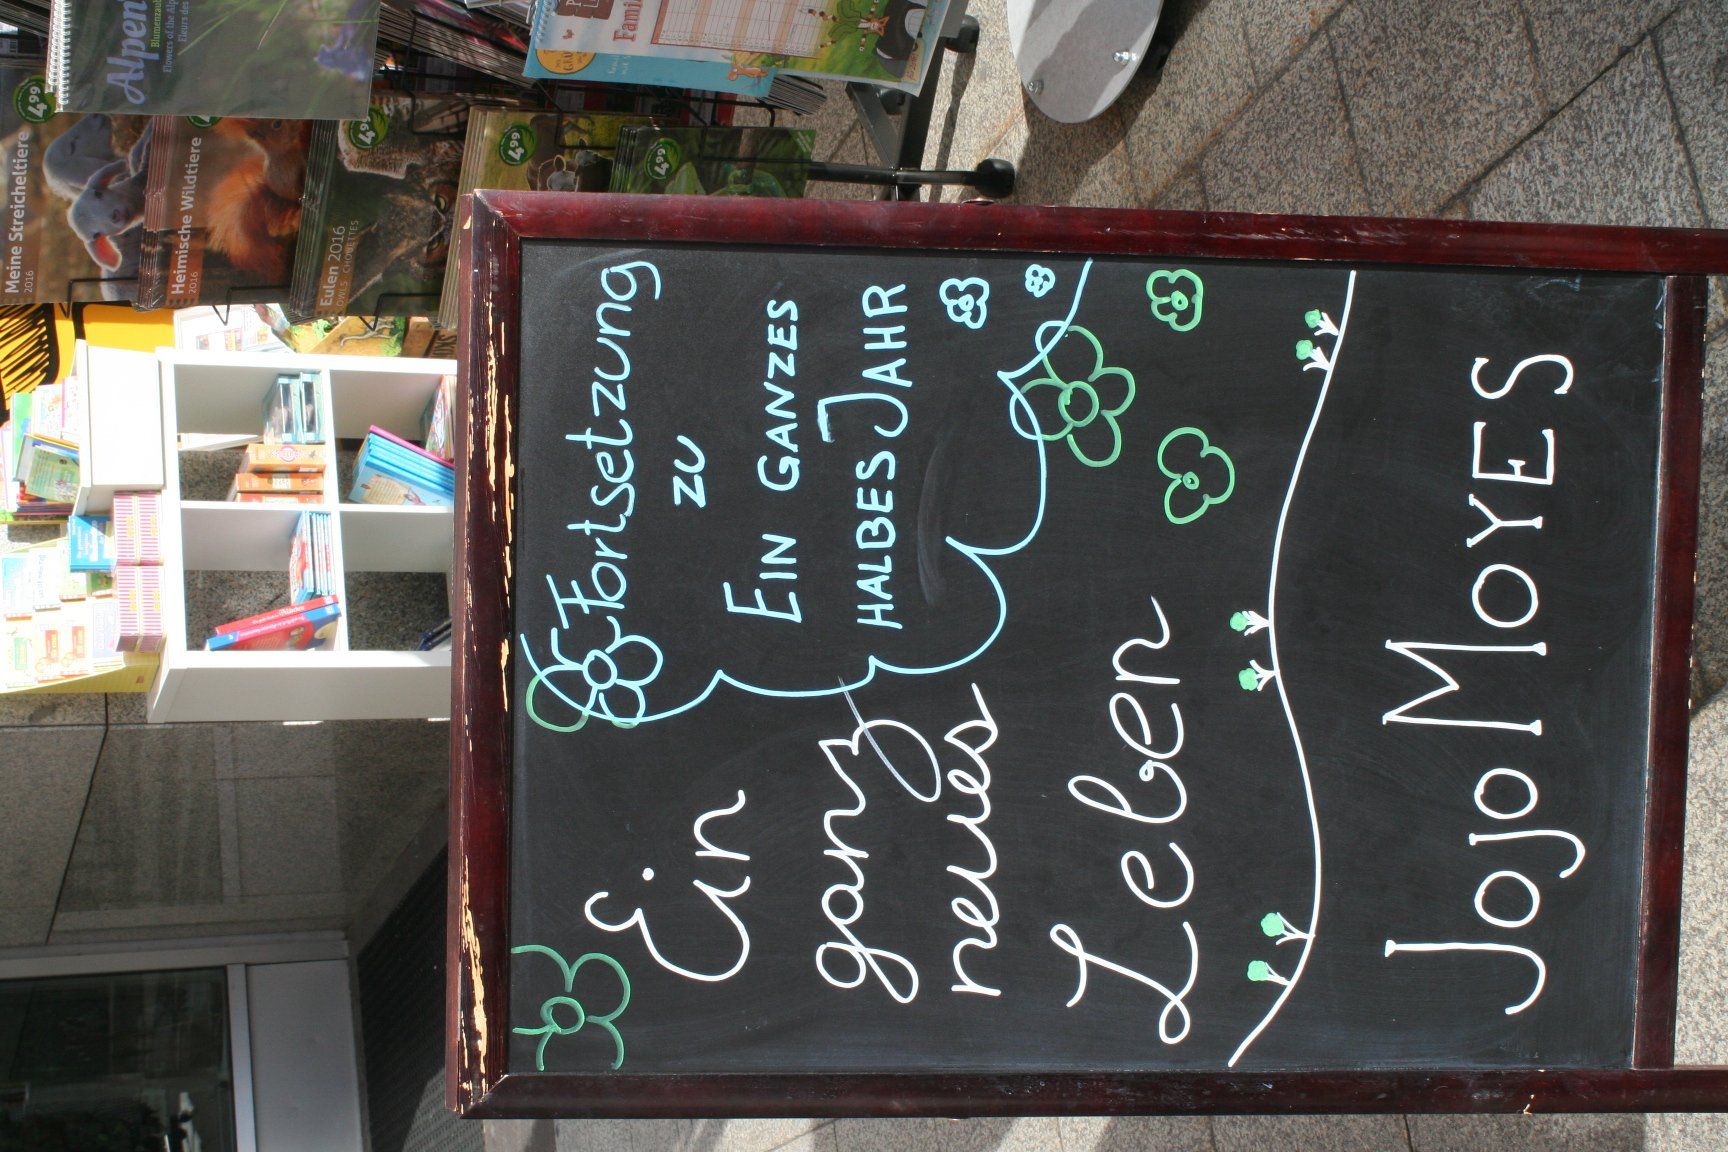 Ein
ganz
neues
Leben
Fortsetzung
zu
EIN GANZES
HALBES JAHR
JOJO MOYES
Meine Streicheltiere
2016
Heimische Wildtiere
2016
Eulen 2016
OWLS · CHOUETTES
Alpen
Flowers of the Alp
Fleurs des
Famil
4.99
4.99
4.99
4.99